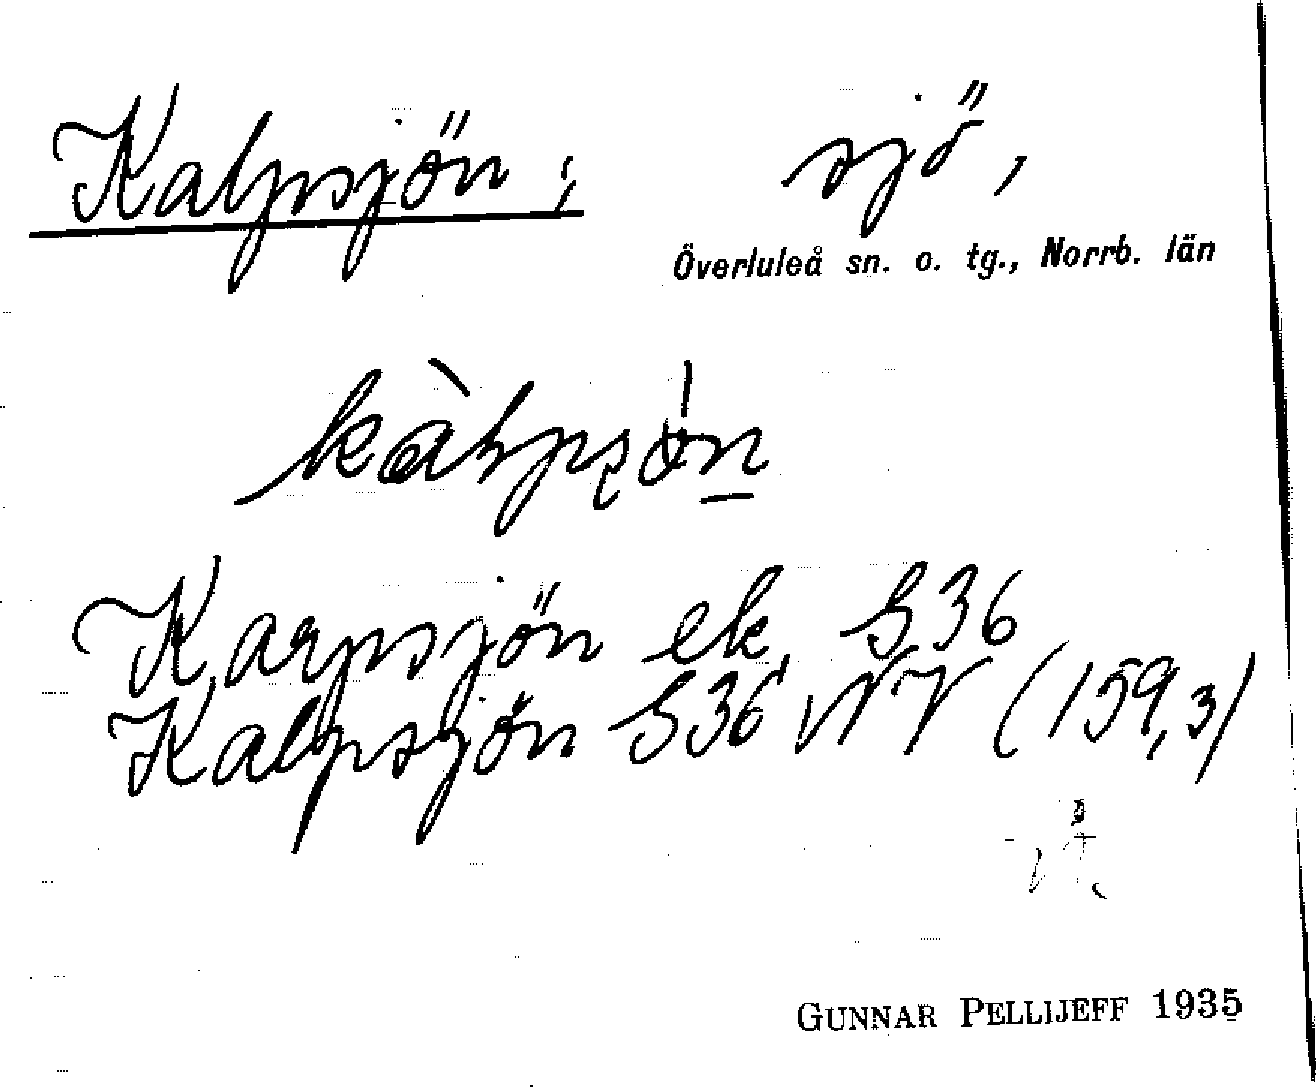 Kalpsjön; sjö,
Överluleå sn. o. tg., Norrb. län
Karpsjön ek. S36
Kalpsjön S36 NV (159,3)
GUNNAR PELLIJEFF 1935